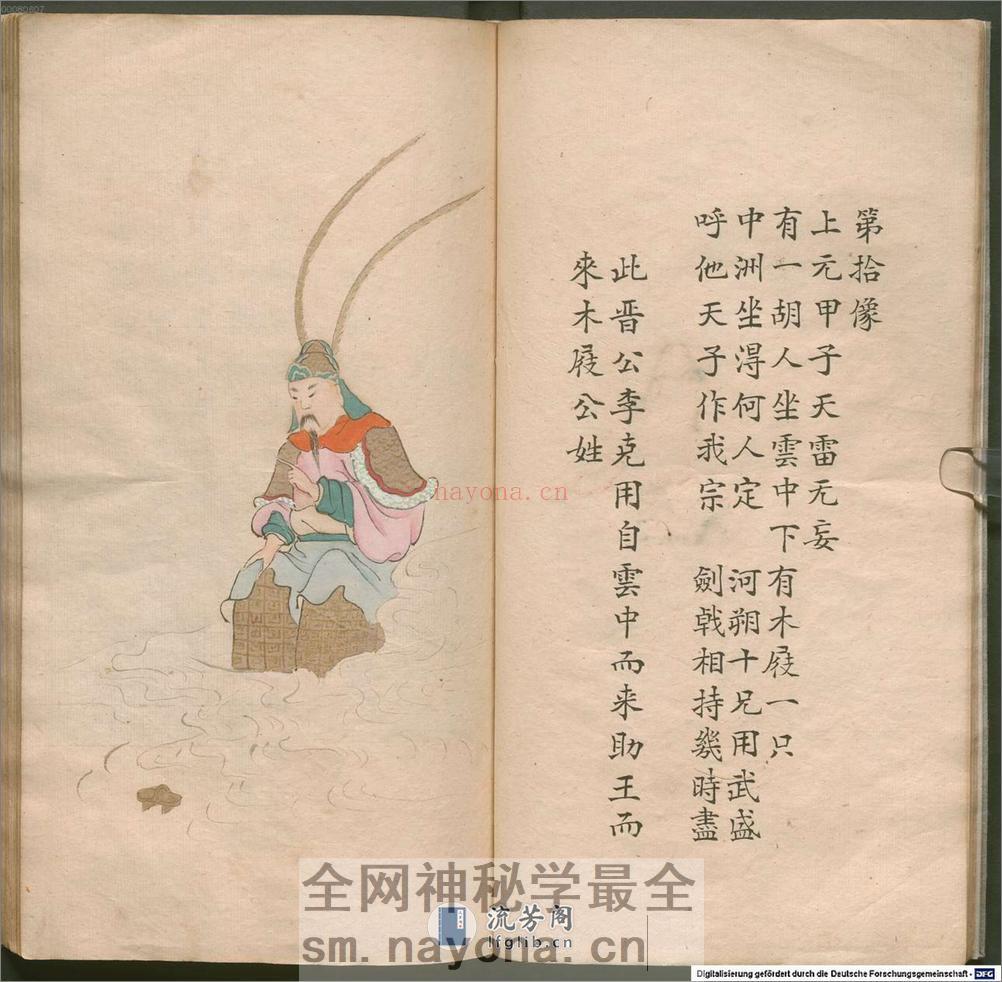 00080607
第拾像
上元甲子天雷无妄
有一胡人坐雲中下有木屐一只
中洲坐得何人定 河朔十兄用武盛
呼他天子作我宗 劍戟相持幾時盡
此晋公李克用自雲中而来助王而
來木屐公姓
nayona.cn
全网神秘学最全
流芳阁
lfglib.cn
sm.nayona.cn
Digitalisierung gefördert durch die Deutsche Forschungsgemeinschaft - DFG